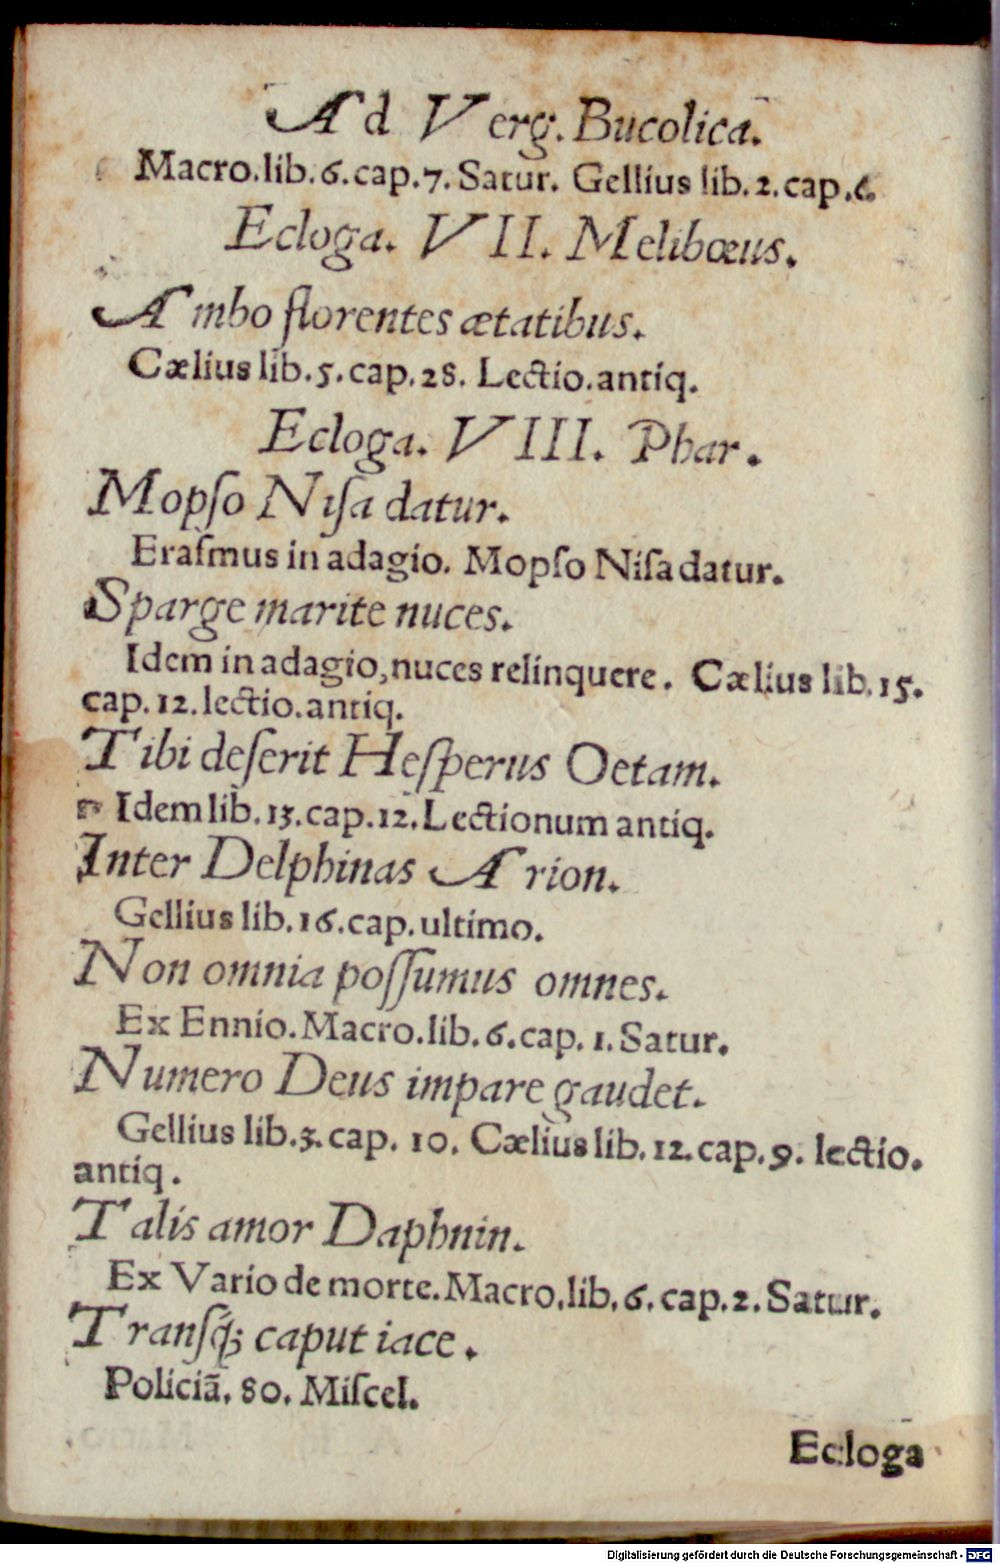 Ad Verg. Bucolica.
Macro.lib.6.cap.7. Satur. Gellius lib.2.cap.6.
Ecloga. VII. Melibœus.
Ambo florentes ætatibus.
Cælius lib.5.cap.28. Lectio.antiq.
Ecloga. VIII. Phar.
Mopſo Niſa datur.
Eraſmus in adagio. Mopſo Niſa datur.
Sparge marite nuces.
Idem in adagio, nuces relinquere. Cælius lib.15.
cap.12.lectio.antiq.
Tibi deſerit Heſperus Oetam.
Idem lib.13.cap.12.Lectionum antiq.
Inter Delphinas Arion.
Gellius lib.16.cap.ultimo.
Non omnia poſſumus omnes.
Ex Ennio.Macro.lib.6.cap.1.Satur.
Numero Deus impare gaudet.
Gellius lib.3.cap. 10. Cælius lib.12.cap.9. lectio.
antiq.
Talis amor Daphnin.
Ex Vario de morte.Macro.lib.6.cap.2.Satur.
Tranſq́; caput iace.
Policiã. 80. Miſcel.
Ecloga
Digitalisierung gefördert durch die Deutsche Forschungsgemeinschaft - DFG